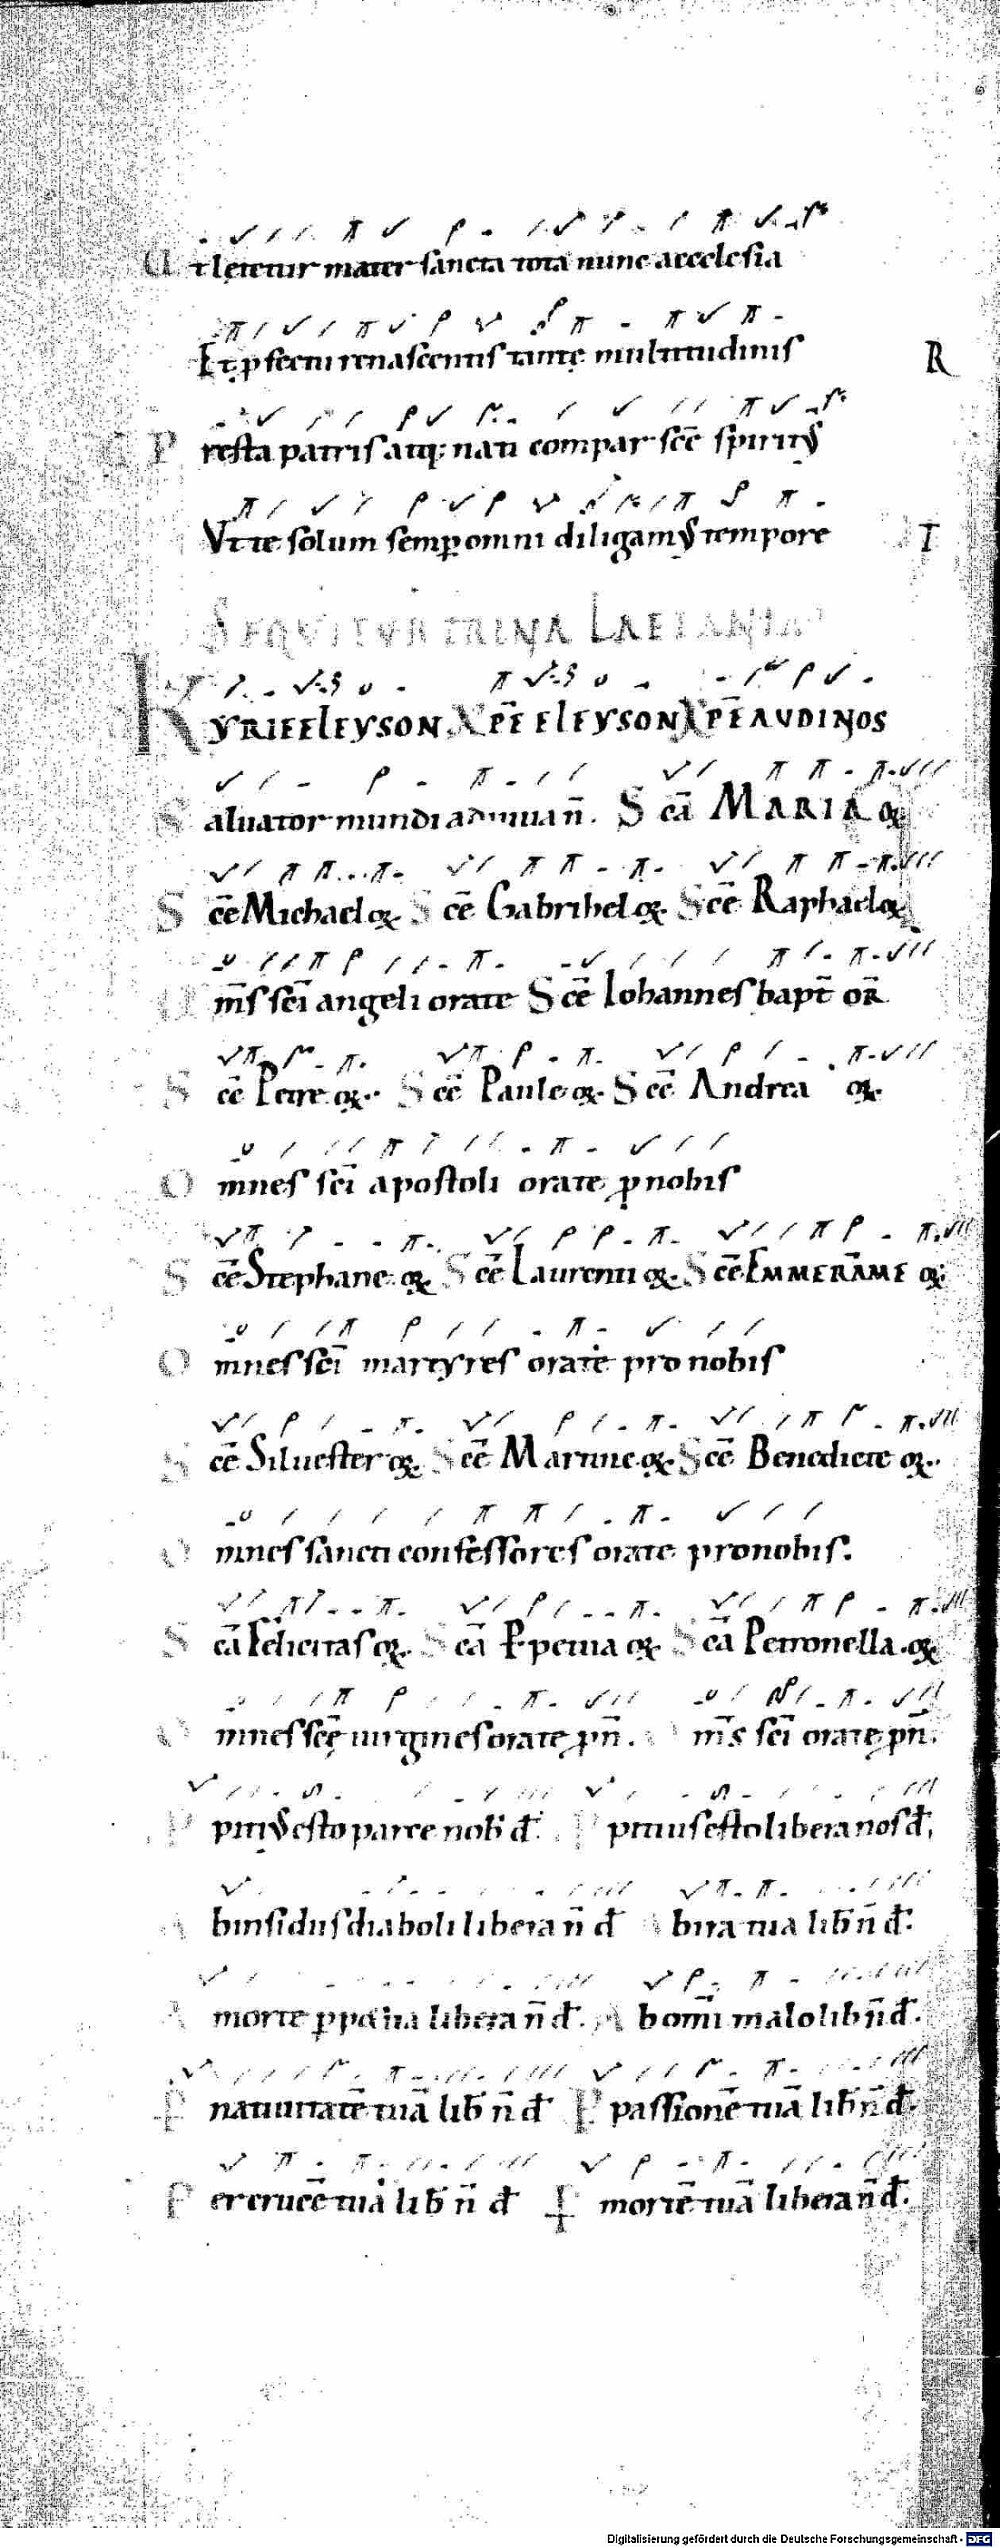 Ut lętetur mater sancta tota nunc aecclesia
Et p̱fectu renascentis tantę multitudinis R
Presta patris atq; nati compar sce̅ spirit9
Vt te solum semp̱ omni diligam9 tempore T
SEQVITVR TRINA LAETANIA
KYRIE ELEYSON XP̅E ELEYSON XP̅E AVDI NOS
Saluator mundi adiuua n̅. Sca̅ MARIA oꝝ
Sce̅ Michael oꝝ. Sce̅ Gabrihel oꝝ. Sce̅ Raphael oꝝ
Om̅s sci̅ angeli orate Sce̅ Iohannes bapt̅ or̅
Sce̅ Petre oꝝ. Sce̅ Paule oꝝ. Sce̅ Andrea oꝝ.
Omnes sci̅ apostoli orate ꝓ nobis
Sce̅ Stephane. oꝝ Sce̅ Laurenti oꝝ. Sce̅ EMMERAME oꝝ
Omnes sci̅ martyres orate pro nobis
Sce̅ Siluester oꝝ. Sce̅ Martine oꝝ. Sce̅ Benedicte oꝝ.
Omnes sancti confessores orate pro nobis.
Sca̅ Felicitas oꝝ. Sca̅ P̱petua oꝝ Sca̅ Petronella. oꝝ
Omnes sce̅ uirgines orate ꝓ n̅. Om̅s sci̅ orate ꝓ n̅.
Ppiti9 esto parce nob̅ d̅. Ppitius esto libera nos d̅.
Ab insidiis diaboli libera n̅ d̅ Ab ira tua lib̅ n̅ d̅.
A morte p̱petua libera n̅ d̅. Ab om̅i malo lib̅ n̅ d̅.
P natiuitate̅ tua̅ lib̅ n̅ d̅ P passione̅ tua̅ lib̅ n̅ d̅.
Per cruce̅ tua̅ lib̅ n̅ d̅ P morte̅ tua̅ libera n̅ d̅.
Digitalisierung gefördert durch die Deutsche Forschungsgemeinschaft - DFG